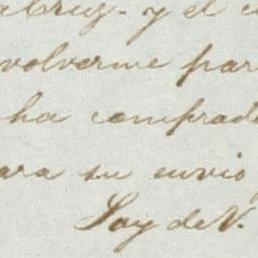 y el
volverme par
ha comprado
ara su envio
Soy de V.